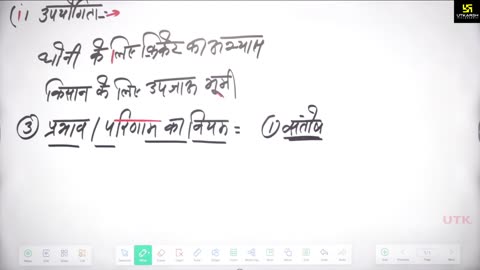 (i) उपयोगिता:-→
धोनी के लिए क्रिकेट का अभ्यास
किसान के लिए उपजाऊ भूमी
③ प्रभाव / परिणाम का नियम = ① संतोष
UTK
UTKARSH